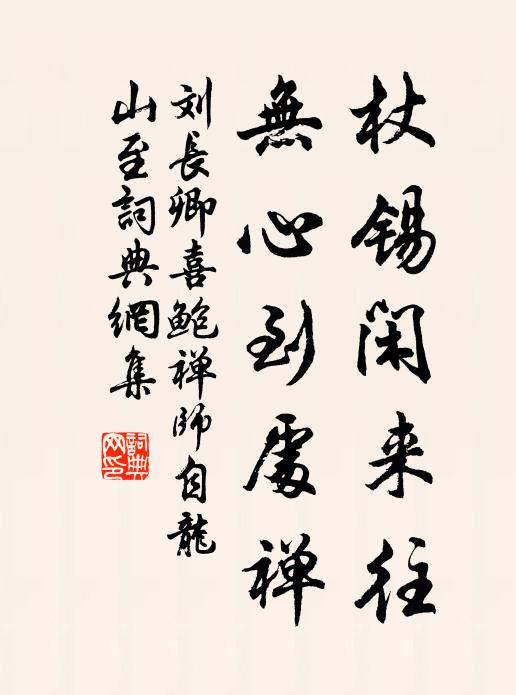 杖锡闲来往
無心到處禅
刘長卿喜鲍禅师自龍
山至詞典網集
詞典
网印